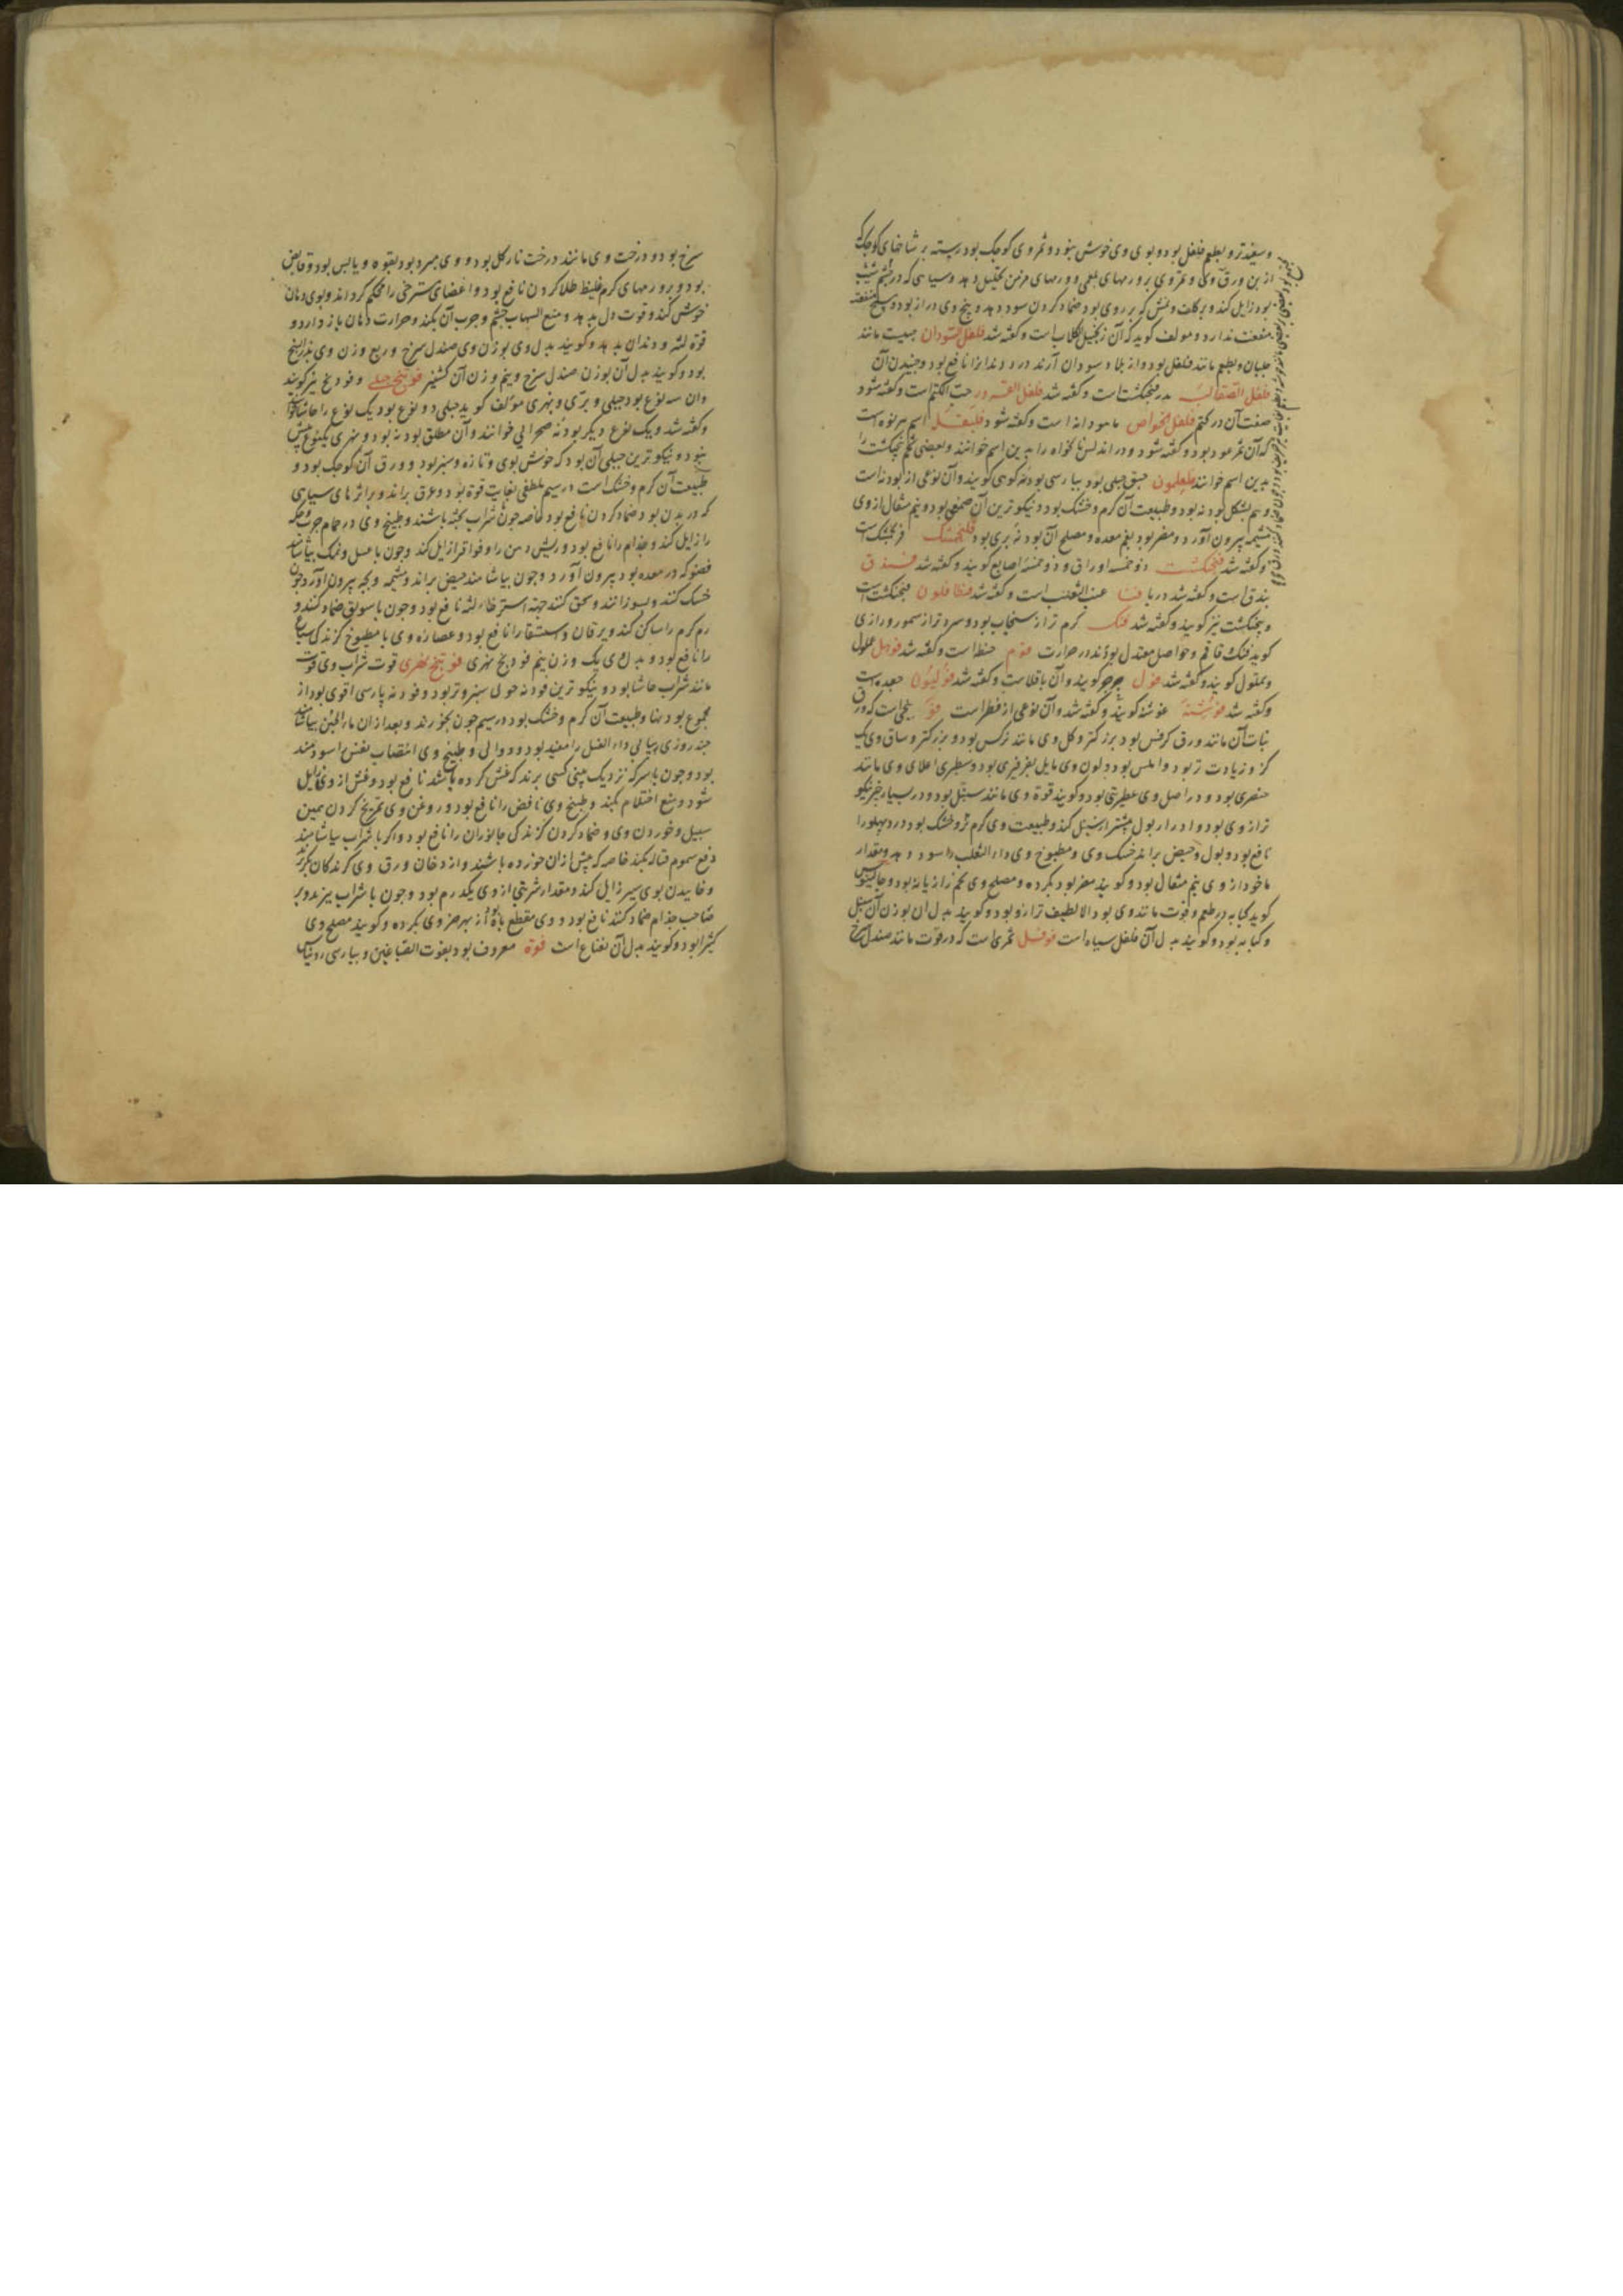 و سفیدتر و بطعم فلفل بود و بوی وی خوش نبود و ثمر وی کوچک بود رسته بر شاخهای کوچک
از بن ورق وی و ثمر وی بر ورمهای بلغمی و ورمهای مزمن تحلیل دهد و سیاهی که در چشم
بود زایل کند و بر کلف و نمش که بر روی بود ضماد کردن سود دهد و بیخ وی دراز بود و هیچ منفعت
منفعت ندارد و مولف کوید که آن زنجبیل الکلاب است و کفته شد فلفل السودان حبیت مانند
جلبان و بطعم مانند فلفل بود و از بلاد سودان آرند درد دندانرا نافع بود و جنبیدن آن
فلفل الصقالبه بذر فنجنکشت است و کفته شد فلفل القرود حب الکتم است و کفته شود
صفت آن در کتم فلفل الخواص ماهودانه است و کفته شود اسم هرنوه است
که آن ثمر عود بود و کفته شود و در اندلس نانخواه را بدین اسم خوانند و بعضی تخم پنجنکشت را
بدین اسم خوانند حبق جبلی بود بپارسی پودنه کوهی کویند و آن نوعی از پودنه است
و هم بشکل پودنه بود و طبیعت آن کرم و خشک بود و نیکوترین آن بود و نیم مثقال از وی
مشیمه بیرون آورد و مضر بود بفم معده و مصلح آن پودنه بری بود فلنجمشک فرنجمشک است
و کفته شد فنجنکشت ذو خمسه اوراق و ذو خمسه اصابع کویند و کفته شد فندق
بندق است و کفته شد در با فنا عنب الثعلب است و کفته شد فنطافلون فنجنکشت است
و پنجنکشت نیز کویند و کفته شد فنک کرم تر از سنجاب بود و سردتر از سمور و رازی
کوید فنک و قاقم و حواصل معتدل بوند در حرارت فوم حنطه است و کفته شد
و مملول کویند و کفته شد فول جرجر کویند و آن باقلاست و کفته شد فولیون جعده است
و کفته شد فوشنه غوشنه کویند و کفته شد و آن نوعی از فطر است فو بیخی است که ورق
نبات آن مانند ورق کرفس بود بزرکتر و کل وی مانند نرکس بود و بزرکتر و ساق وی یک
کز و زیادت تر بود و املس بود و لون وی مایل بفرفیری بود و سطبری اعلای وی مانند
خنصری بود و در اصل وی عطریتی بود و کویند قوة وی مانند سنبل بود و در بسیار چیز نیکو
تر از وی بود و ادرار بول بیشتر از سنبل کند و طبیعت وی کرم و خشک بود و درد پهلو را
نافع بود و بول و حیض براند خشک وی و مطبوخ وی و داء الثعلب را سود دهد و مقدار
ماخوذ از وی نیم مثقال بود و کویند مضر بود بکرده و مصلح وی تخم رازیانه بود و جالینوس
کوید کبابه در طعم و قوت مانند وی بود الا لطیف تر ازو بود و کویند بدل آن بوزن آن سنبل
و کبابه بود و کویند بدل آن فلفل سیاه است فوفل ثمری است که در قوت مانند صندل سرخ
سرخ بود و درخت وی مانند درخت نارکل بود و وی مبرد بود بقوه و یابس بود و قابض
بود و بر ورمهای کرم غلیظ طلا کردن نافع بود و اعضای مسترخی را محکم کرداند و بوی دهان
خوش کند و قوت دل بدهد و منع التهاب چشم و جرب آن بکند و حرارت دهان باز دارد و
قوة لثه و دندان بدهد و کویند بدل وی بوزن وی صندل سرخ و ربع وزن وی بذر البنج
بود و کویند بدل آن بوزن صندل سرخ و نیم وزن آن کشنیز فوتنج جبلی و فودنج نیز کویند
و آن سه نوع بود جبلی و بری و نهری مولف کوید جبلی دو نوع بود یک نوع را حاشا خوانند
و کفته شد و یک نوع دیکر پودنه صحرایی خوانند و آن مطلق پودنه بود و نهری یکنوع بیش
نبود و نیکوترین جبلی آن بود که خوش بوی و تازه و سبز بود و ورق آن کوچک بود و
طبیعت آن کرم و خشک است در سیم ملطفی بغایت قوة بود و عرق براند و بر اثرهای سیاهی
که در بدن بود ضماد کردن نافع بود خاصه چون بشراب پخته باشند و طبیخ وی در حمام جرب و حکه
را زایل کند و جذام را نافع بود و ریش دهن را و فواق را زایل کند و چون با عسل و نمک بیاشامند
فضول که در معده بود بیرون آورد و چون بیاشامند حیض براند و مشیمه و بچه بیرون آورد و چون
خشک کنند و بسوزانند و سحق کنند جهة استرخاء لثه نافع بود و چون با سویق ضماد کنند و
ورم کرم را ساکن کند و یرقان و استسقا را نافع بود و عصاره وی با مطبوخ کزندکی سباع
را نافع بود و بدل وی یک وزن نیم فودنج نهری فوتنج نهری قوت شراب وی قوت
مانند شراب حاشا بود و نیکوترین فودنه جویی سبز و تر بود و فودنه پارسی اقوی بود از
مجموع پودنها و طبیعت آن کرم و خشک بود در سیم چون بخورند و بعد از آن ماء الجبن بیاشامند
چند روزی پیاپی داء الفیل را مفید بود و دوالی و طبیخ وی انتصاب نفس را سودمند
بود و چون با سرکه نزدیک بینی کسی برند که غش کرده باشد نافع بود و غش از وی زایل
شود و منع احتلام بکند و طبیخ وی نافض را نافع بود و روغن وی تمریخ کردن همین
سبیل و خوردن وی و ضماد کردن کزندکی جانوران را نافع بود و اکر با شراب بیاشامند
دفع سموم قتاله بکند خاصه که پیش از آن خورده باشند و از دخان ورق وی کزندکان بکریزند
و خاییدن بوی سیر زایل کند و مقدار شربتی از وی یکدرم بود و چون با شراب بپزند و بر
صاحب جذام ضماد کنند نافع بود و وی مقطع باه بود از بهر حر وی بکرده و کویند مصلح وی
کثیرا بود و کویند بدل آن نعناع است فوة معروف بود بفوت الصباغین و بپارسی روناس